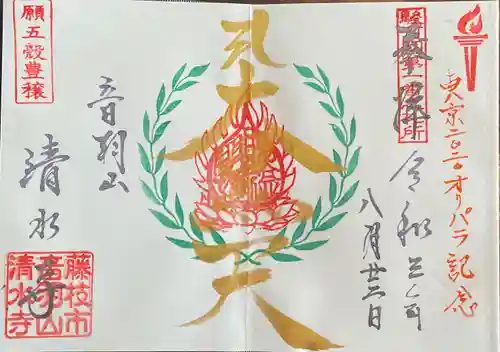 東京二〇二〇オリパラ記念
奉拝
令和三年
八月廿二日
音羽山
清水寺
願五穀豊穣
藤枝市
音羽山
清水寺